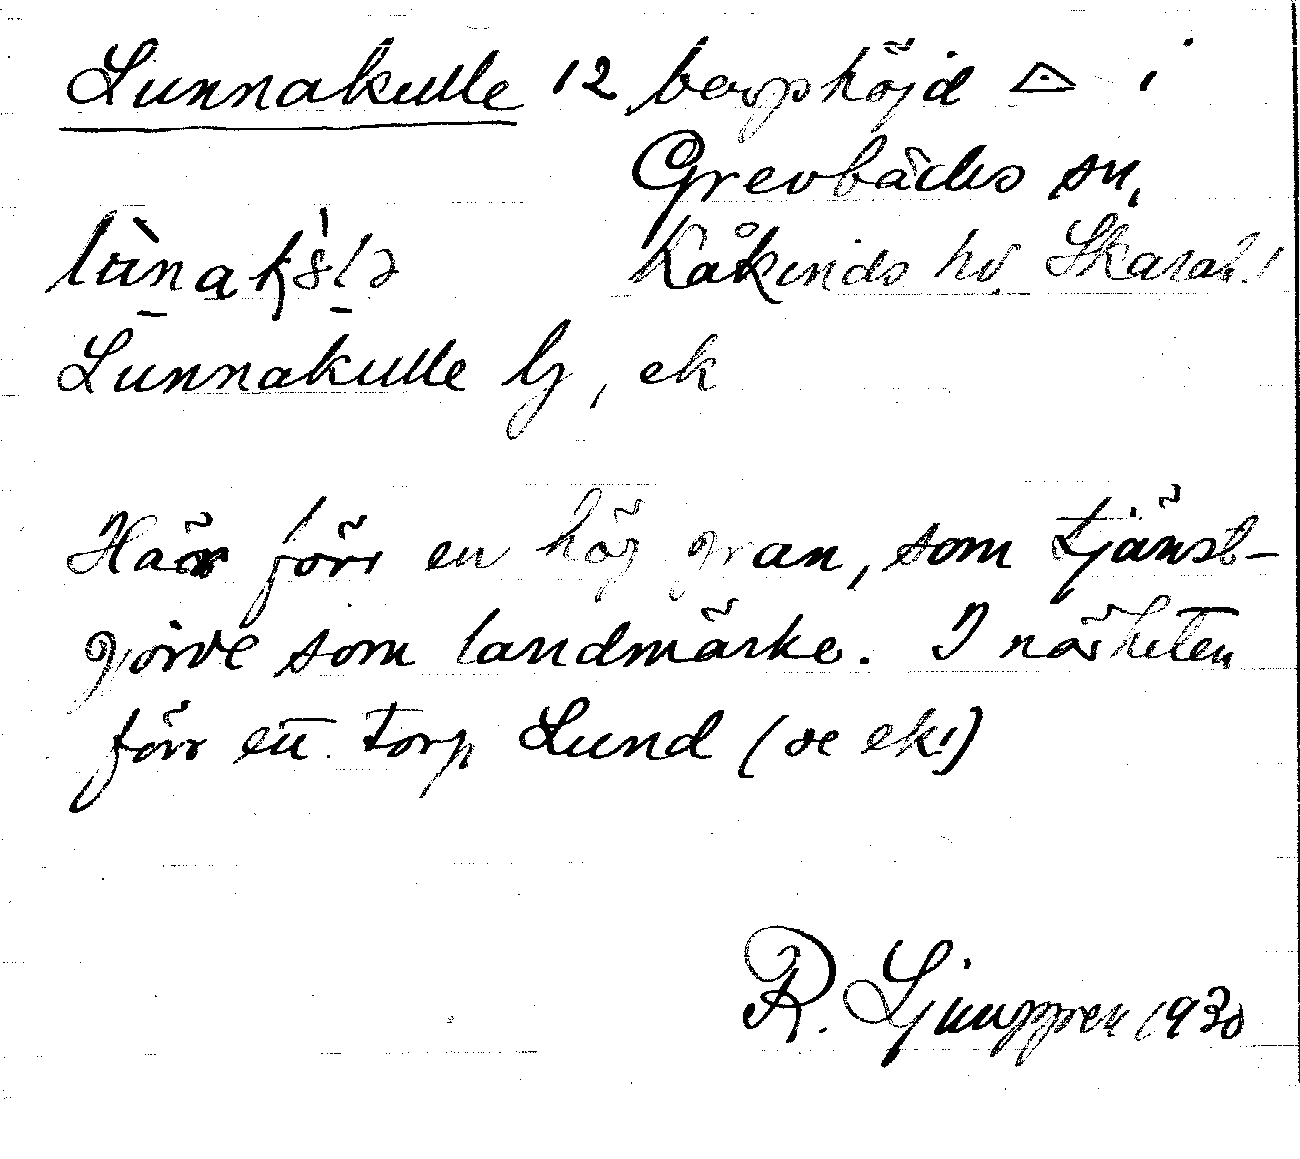 Lunnakulle 12 bergshöjd △ i
Grevbäcks sn,
Kåkinds hd. Skarab.l
Lunnakulle lj, ek
Här förr en hög gran, som tjänst-
gjorde som landmärke. I närheten
förr ett torp Lund (se ek!)
R. Ljunggren 1930